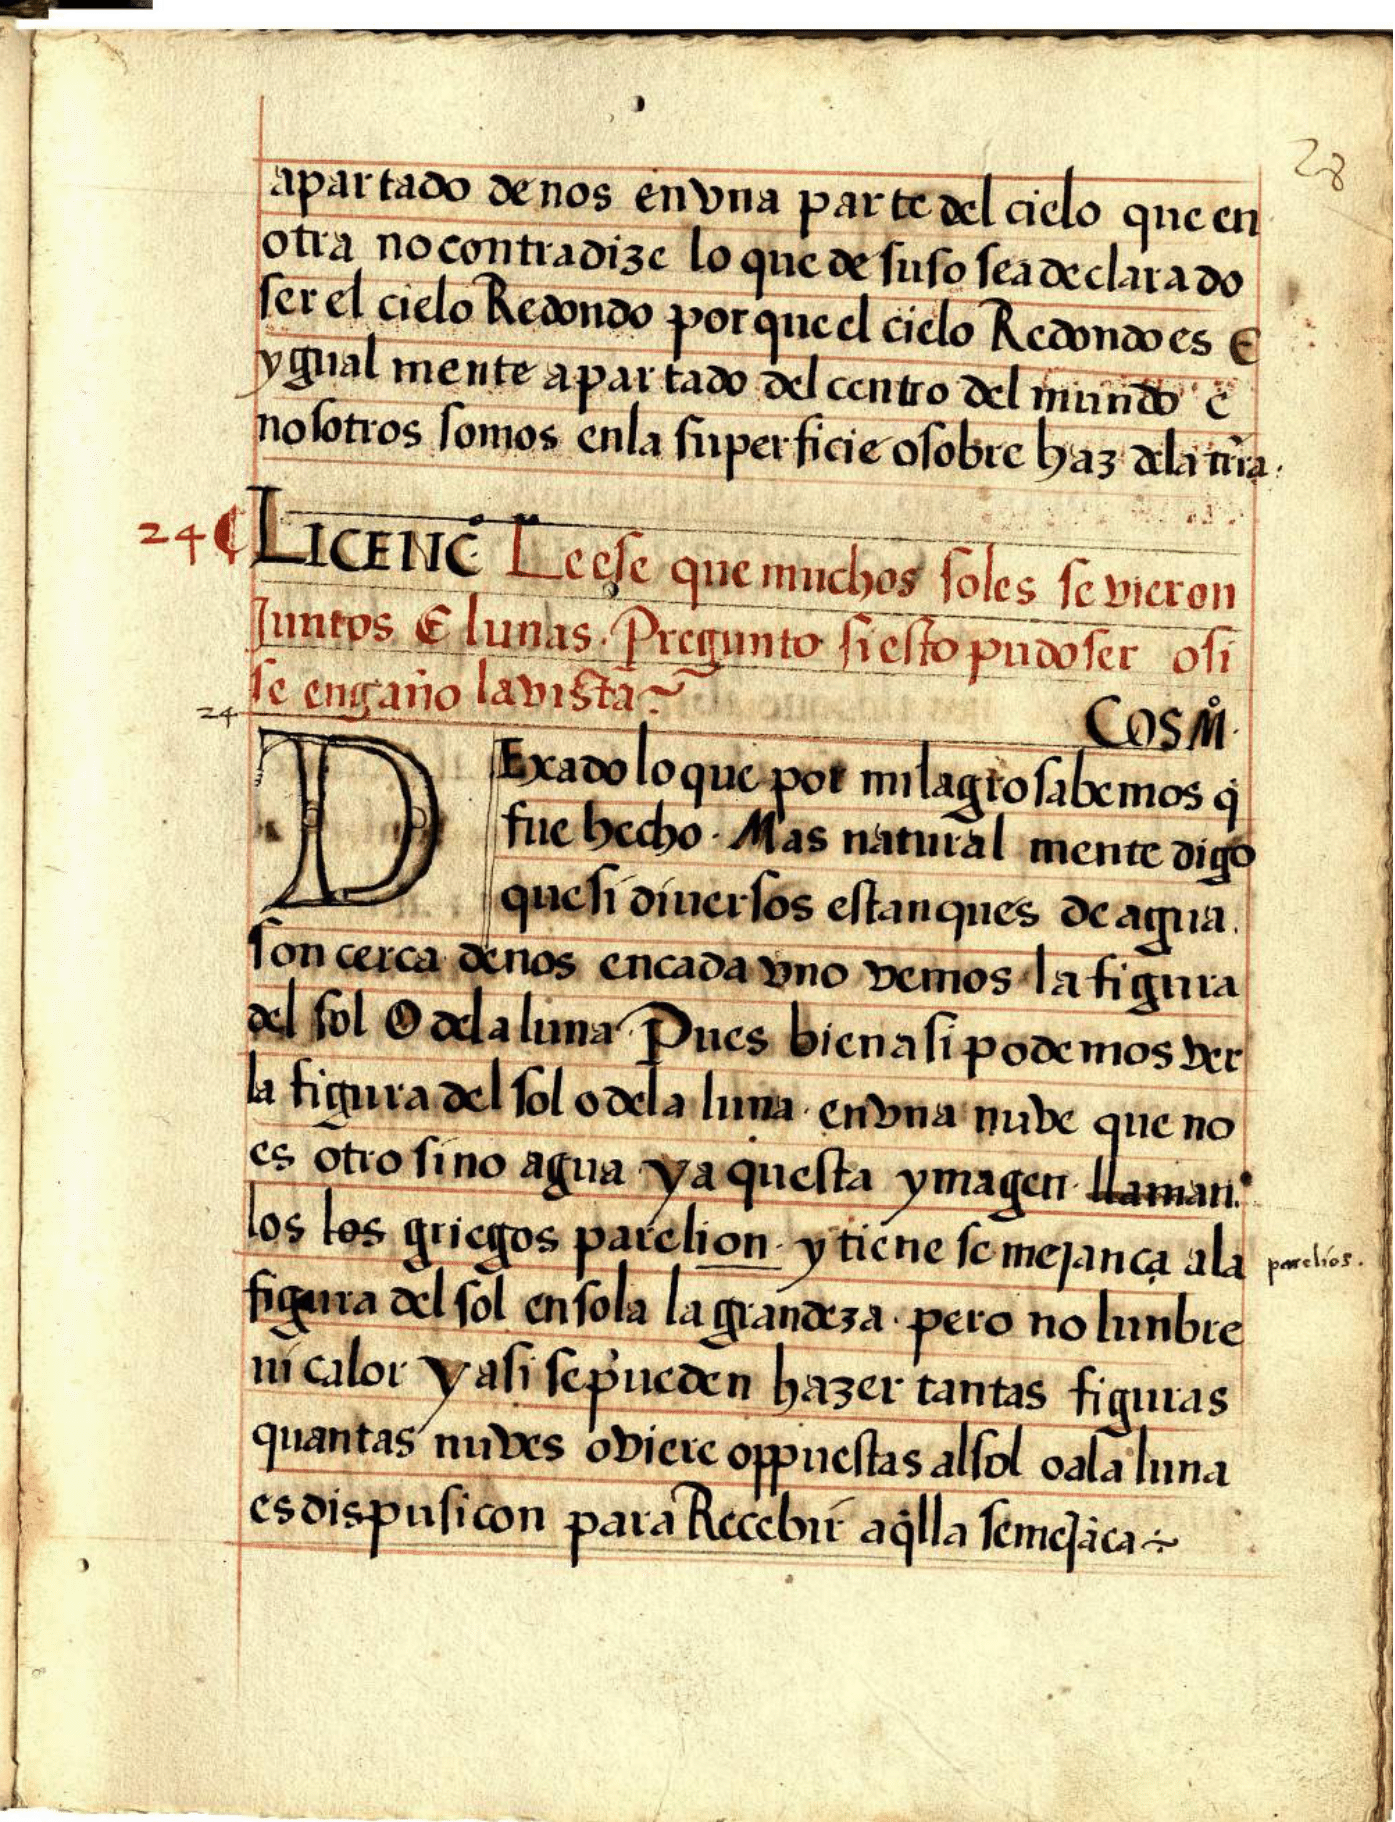 28
apartado de nos en vna parte del cielo que en
otra no contradize lo que de suso sea declarado
ser el cielo Redondo porque el cielo Redondo es E
ygual mente apartado del centro del mundo e
nosotros somos enla superficie o sobre haz dela trr̃a.
24 ¶ LICENC̊ Leese que muchos soles se vieron
Juntos E lunas. Pregunto si esto pudo ser o si
se engaño la vista~
24
COSM̊.
DExado lo que por milagro sabemos q̇
fue hecho. Mas natural mente digo
que si diuersos estanques de agua.
son cerca de nos en cada vno vemos la figura
del sol O dela luna. Pues bien asi podemos ver
la figura del sol o dela luna. en vna nuve que no
es otro sino agua y aquesta ymagen llaman.
los los griegos parelion. y tiene semejança ala
parelios.
figura del sol en sola la grandeza. pero no lunbre
ni calor y asi se pueden hazer tantas figuras
quantas nuves oviere oppuestas al sol o ala luna
es dispusicon para Recebir aq̇lla semejāca~